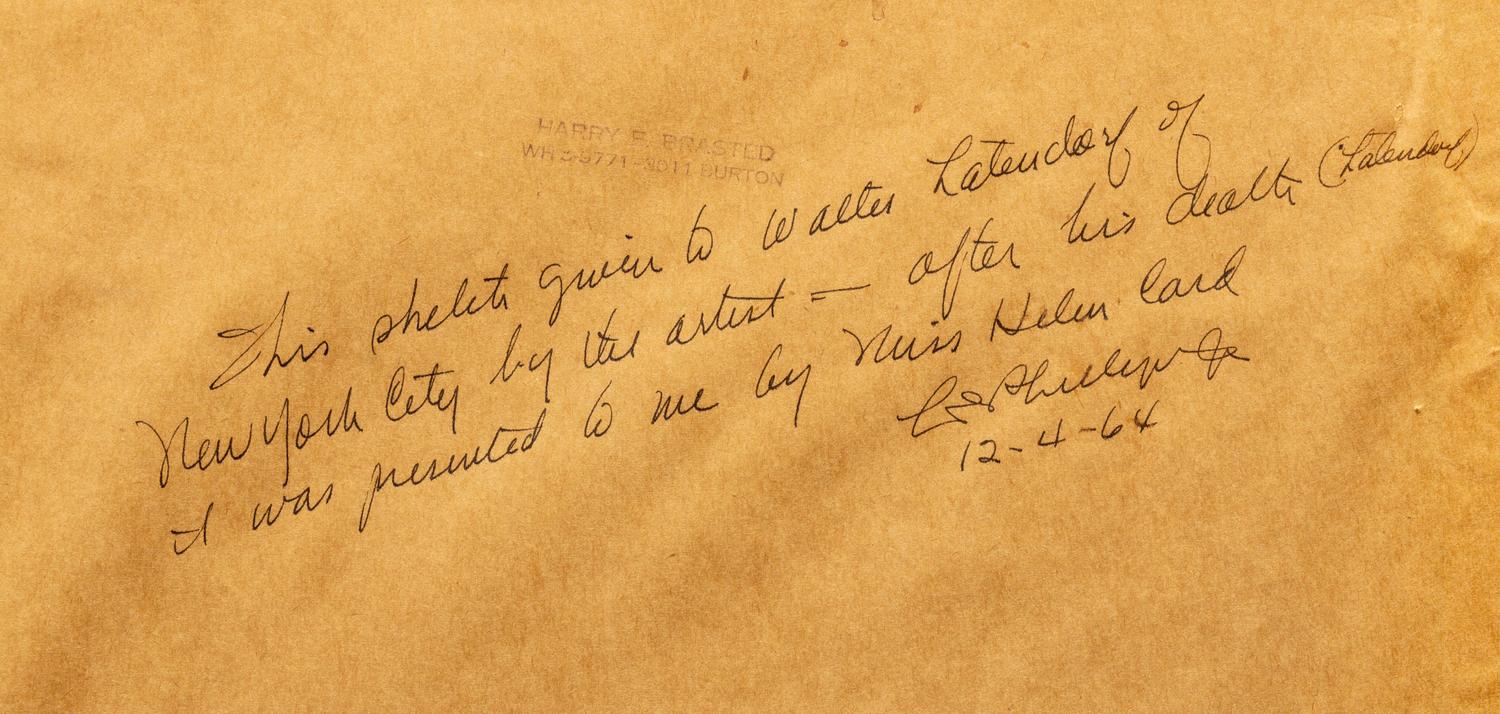 HARRY E. BRASTED
WH 3-9771-3011 BURTON
This sketch given to Walter Latendorf of
New York City by the artist — after his death (Latendorf)
it was presented to me by Miss Helen Card
Phillips Jr
12-4-64